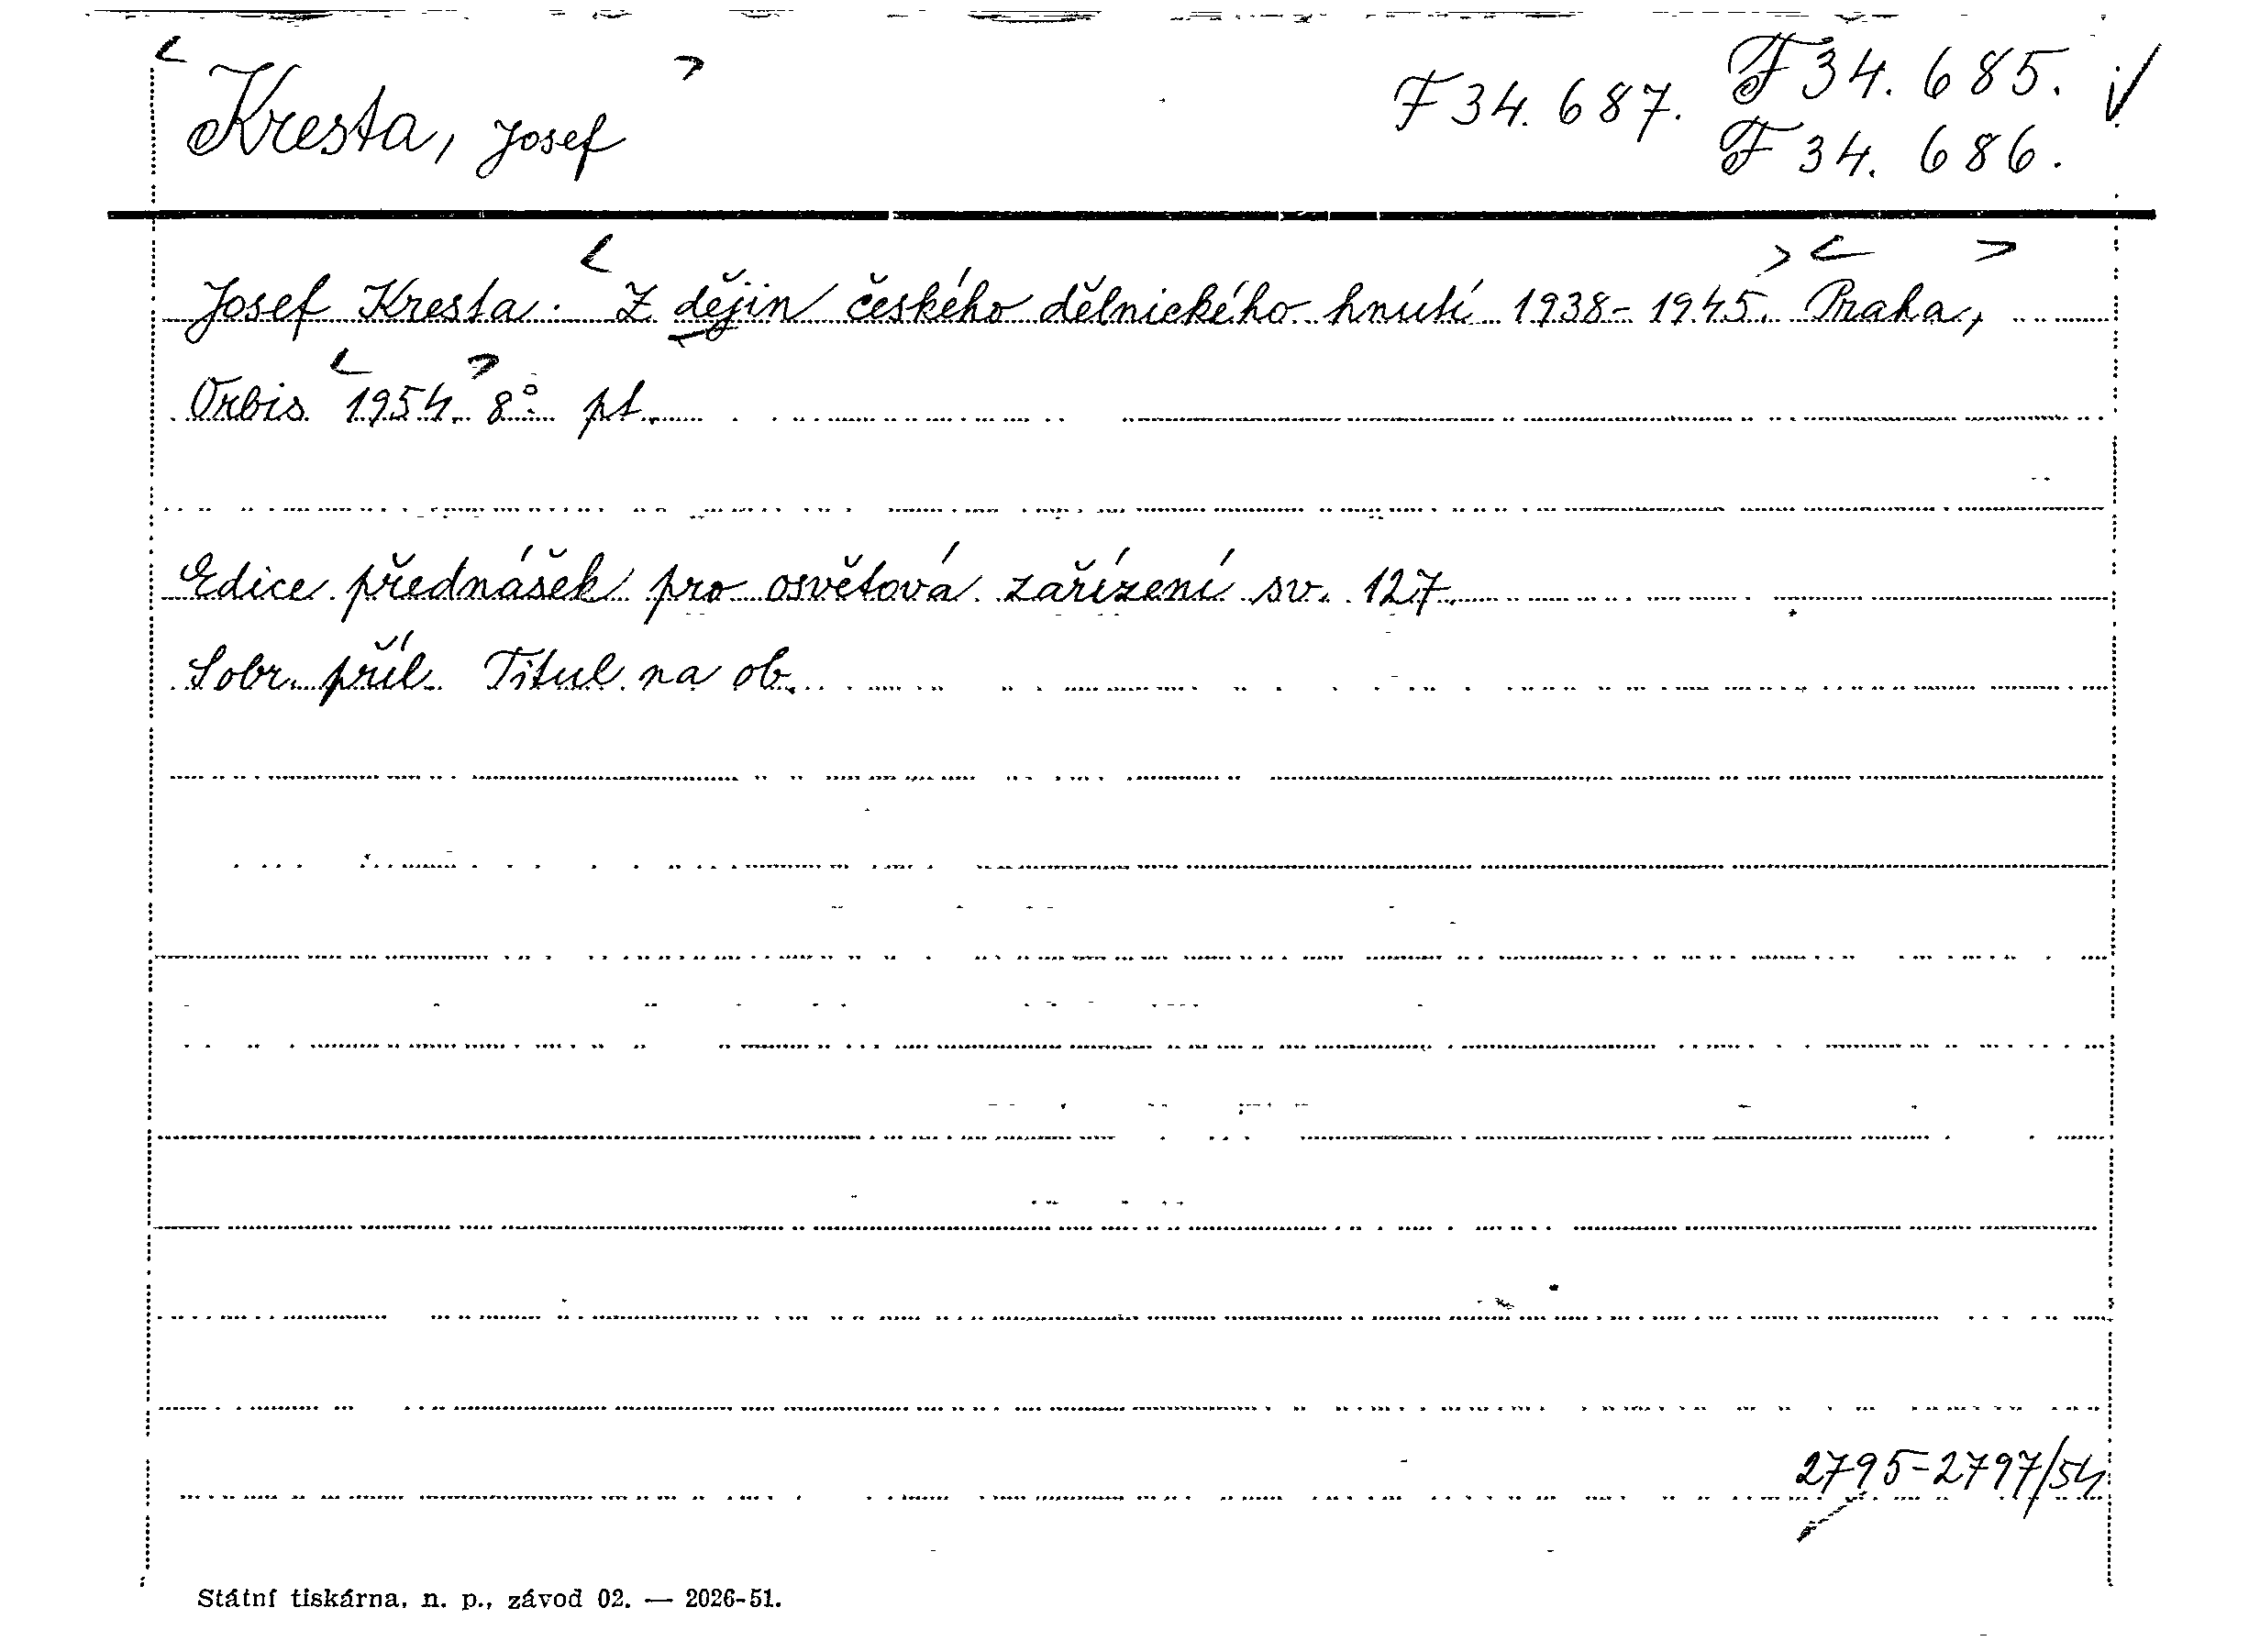 Kresta, Josef
F 34. 687. F 34. 685.
F 34. 686.
Josef Kresta: Z dějin českého dělnického hnutí 1938-1945. Praha,
Orbis 1954. 8° pt.
Edice přednášek pro osvětová zařízení sv. 127.
Sobr. příl. Titul. na ob.
2795-2797/54
Státní tiskárna, n. p., závod 02. — 2026-51.